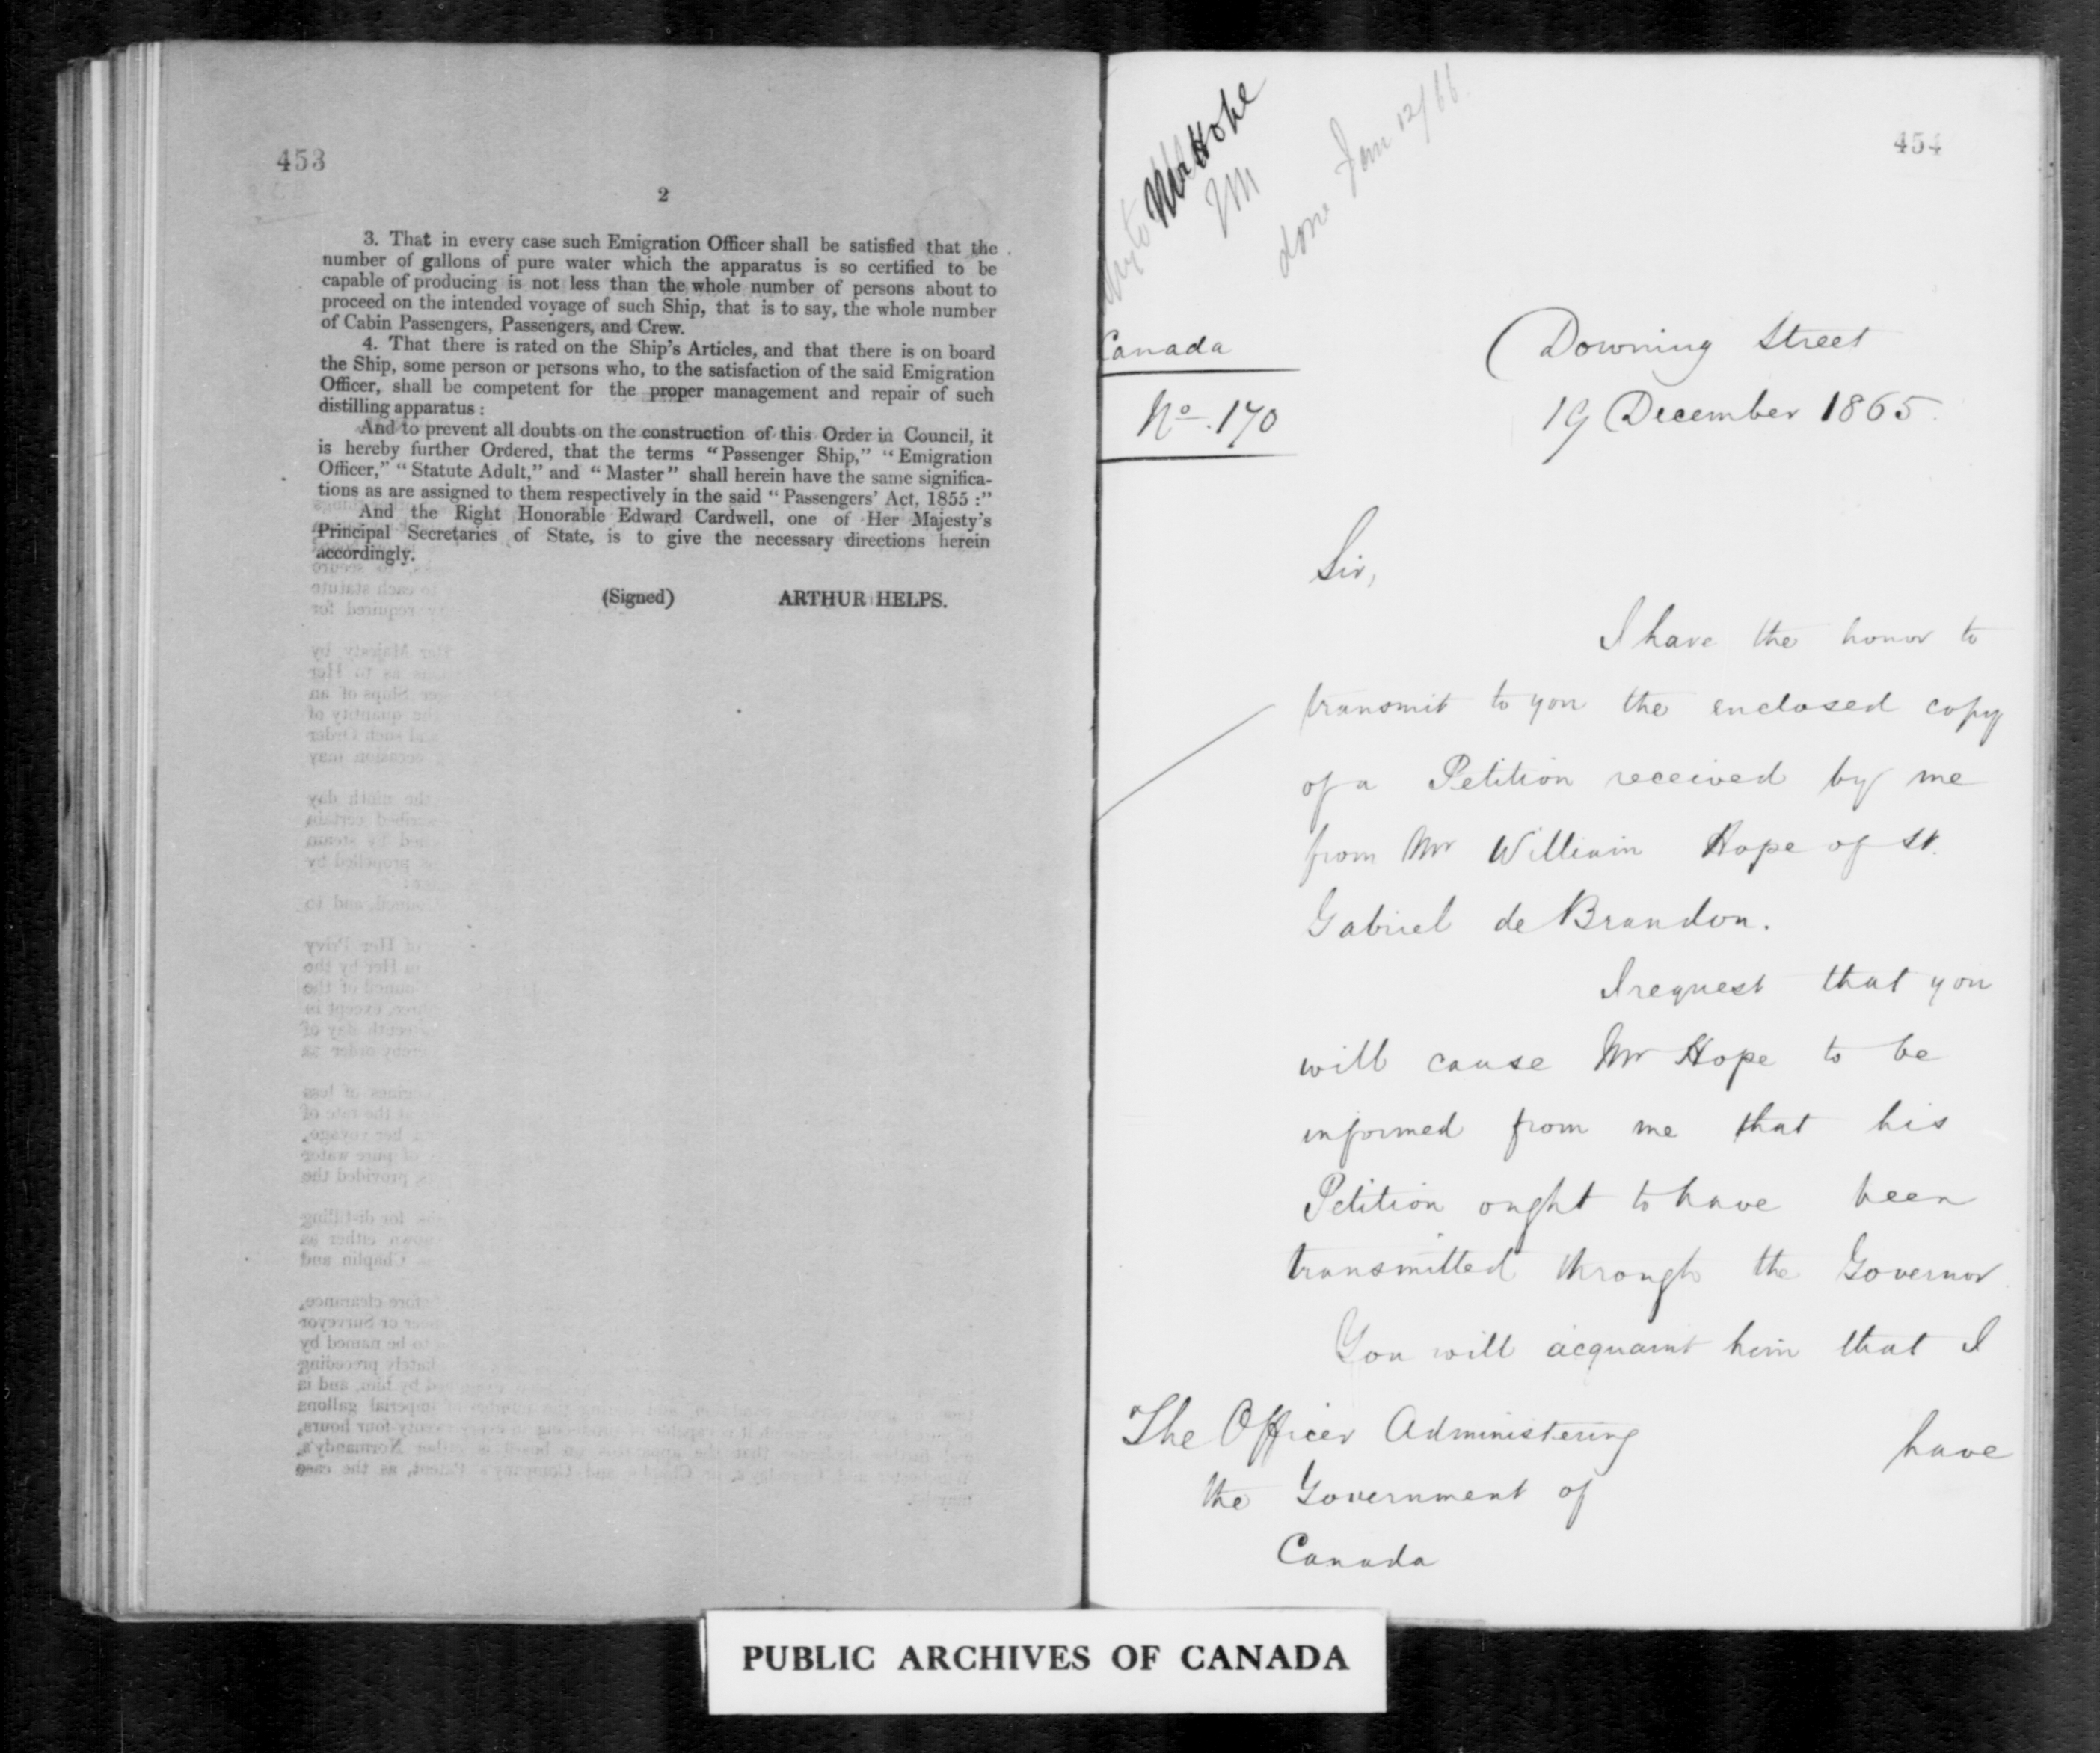 453
2
3. That in every case such Emigration Officer shall be satisfied that the
number of gallons of pure water which the apparatus is so certified to be
capable of producing is not less than the whole number of persons about to
proceed on the intended voyage of such Ship, that is to say, the whole number
of Cabin Passengers, Passengers, and Crew.
4. That there is rated on the Ship's Articles, and that there is on board
the Ship, some person or persons who, to the satisfaction of the said Emigration
Officer, shall be competent for the proper management and repair of such
distilling apparatus :
And to prevent all doubts on the construction of this Order in Council, it
is hereby further Ordered, that the terms "Passenger Ship," "Emigration
Officer," "Statute Adult," and "Master" shall herein have the same significa-
tions as are assigned to them respectively in the said "Passengers' Act, 1855 :"
And the Right Honorable Edward Cardwell, one of Her Majesty's
Principal Secretaries of State, is to give the necessary directions herein
accordingly.
(Signed) ARTHUR HELPS.
454
Mr Hope
done Jan 12/66
Canada
No. 170
Downing Street
19 December 1865.
Sir,
I have the honor to
transmit to you the enclosed copy
of a Petition received by me
from Mr William Hope of St.
Gabriel de Brandon.
I request that you
will cause Mr Hope to be
informed from me that his
Petition ought to have been
transmitted through the Governor
You will acquaint him that I
The Officer Administering
have
the Government of
Canada
PUBLIC ARCHIVES OF CANADA